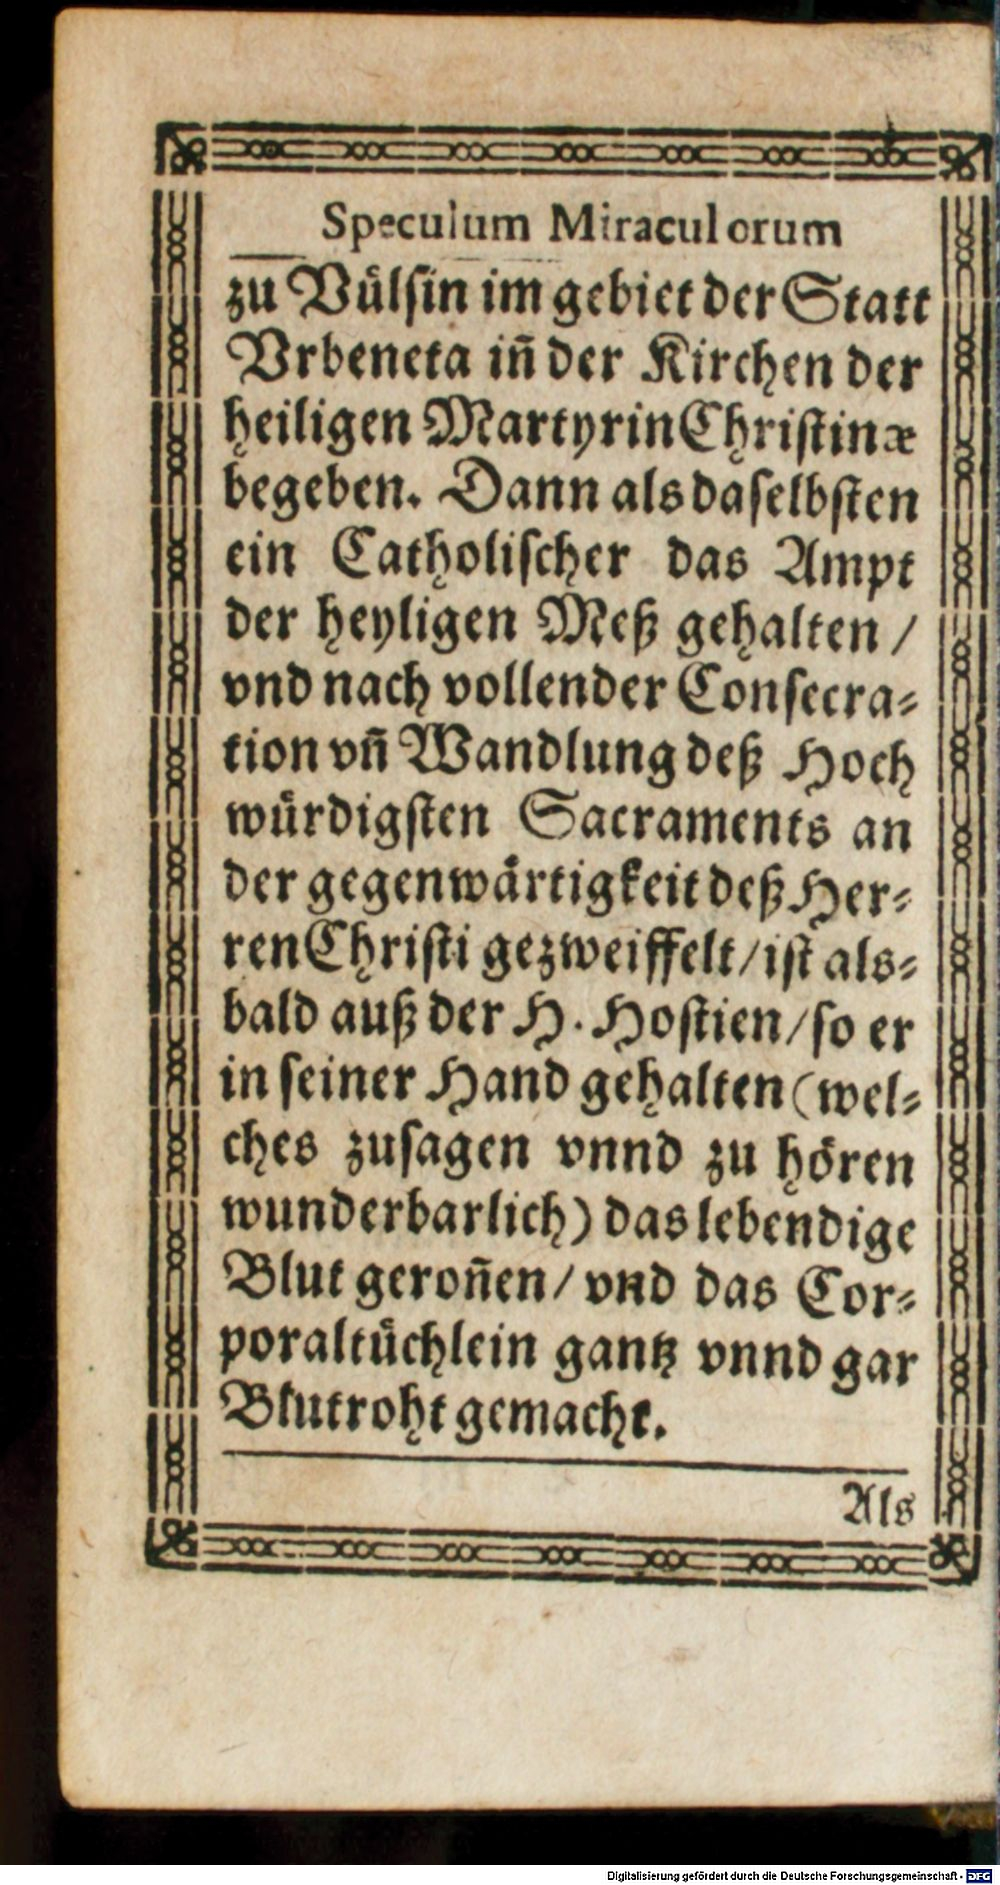 Speculum Miraculorum
zu Vülsin im gebiet der Statt
Vrbeneta iñ der Kirchen der
heiligen Martyrin Christinæ
begeben. Dann als daselbsten
ein Catholischer das Ampt
der heyligen Meß gehalten /
vnd nach vollender Consecra-
tion vñ Wandlung deß Hoch
würdigsten Sacraments an
der gegenwärtigkeit deß Her-
ren Christi gezweiffelt / ist als-
bald auß der H. Hostien / so er
in seiner Hand gehalten (wel-
ches zusagen vnnd zu hören
wunderbarlich) das lebendige
Blut geroñen / vnd das Cor-
poraltüchlein gantz vnnd gar
Blutroht gemacht.
Als
Digitalisierung gefördert durch die Deutsche Forschungsgemeinschaft - DFG